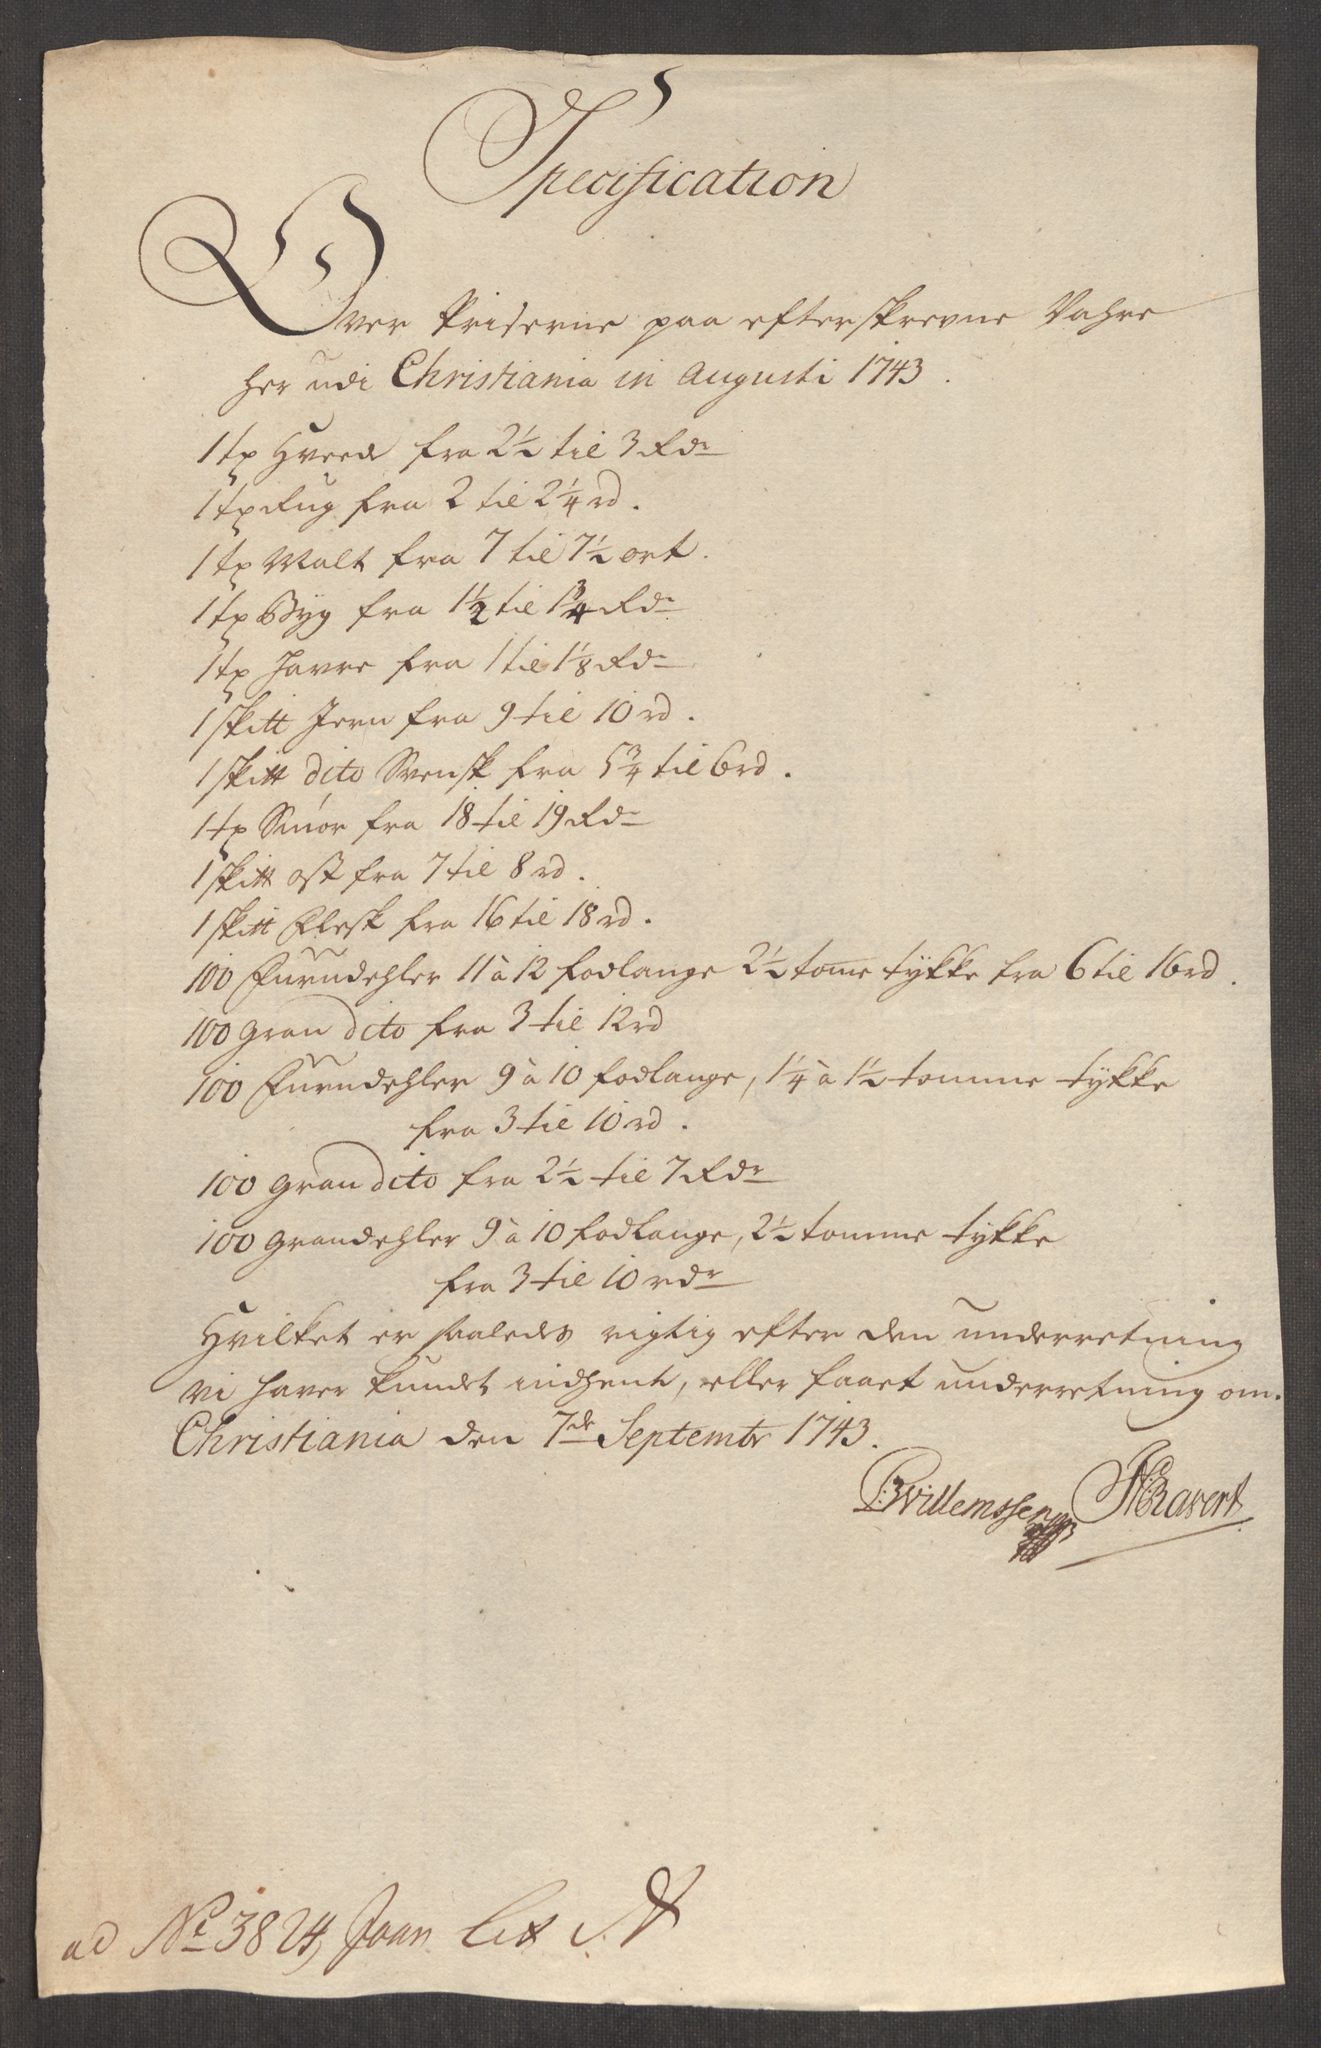 Specification
Over Priserne paa efterskrevne Vahre
her udi Christiania in Augusti 1743.
1 tp Hvede fra 2½ til 3 Rdr
1 tp Rug fra 2 til 2¼ rd.
1 tp Malt fra 7 til 7½ ort.
1 tp Byg fra 1½ til 1¾ Rdr
1 tp Havre fra 1 til 1⅛ Rdr
1 skitt Jern fra 9 til 10 rd.
1 skitt dito Svensk fra 5¾ til 6 rd.
1 tp Smør fra 18 til 19 Rdr
1 skitt ost fra 7 til 8 rd.
1 skitt Flesk fra 16 til 18 rd.
100 Furudehler 11 à 12 fodlange 2½ tome tykke fra 6 til 16 rd.
100 gran dito fra 3 til 12 rd
100 Furudehler 9 à 10 fodlange, 1¼ à 1½ tomme tykke
fra 3 til 10 rd.
100 gran dito fra 2½ til 7 Rdr
100 grandehler 9 à 10 fodlange, 2½ tomme tykke
fra 3 til 10 rdr
Hvilket er saaledes rigtig efter den underretning
vi haver kundet indhente, eller faaet underretning om.
Christiania den 7de Septembr 1743.
Willemssen Ravert
ad No 3824